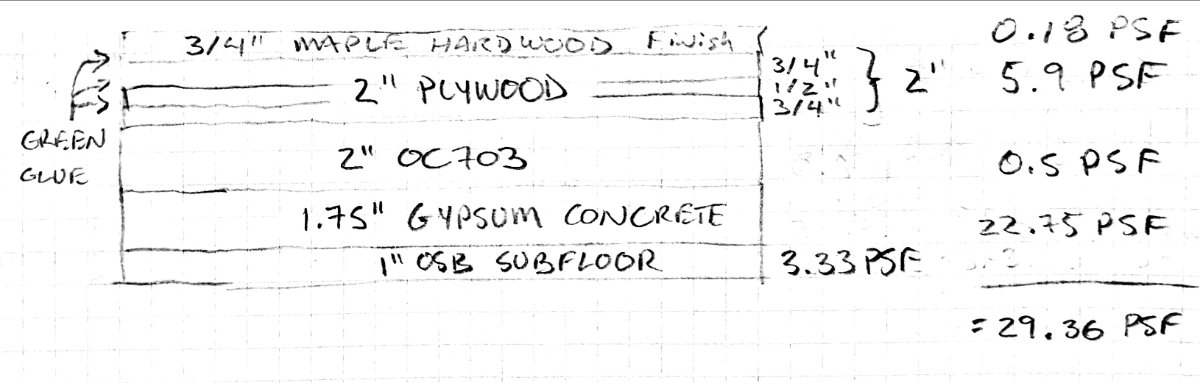 3/4" MAPLE HARDWOOD Finish
0.18 PSF
3/4"
1/2"
3/4"
2"
2" PLYWOOD
5.9 PSF
GREEN
GLUE
2" OC703
0.5 PSF
1.75" GYPSUM CONCRETE
22.75 PSF
1" OSB SUBFLOOR
3.33 PSF
= 29.36 PSF